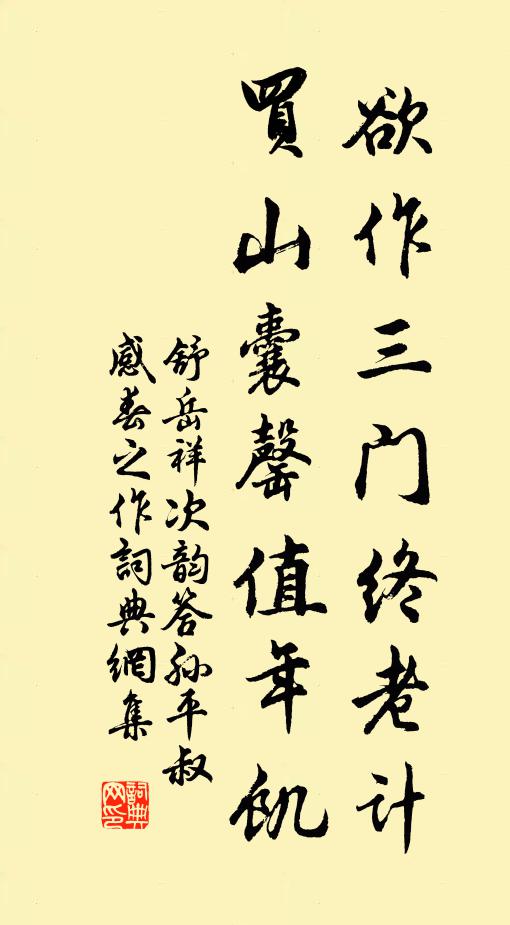 欲作三门终老计
買山囊罄值年飢
舒岳祥次韵答孙平叔
感春之作詞典網集
詞典网印